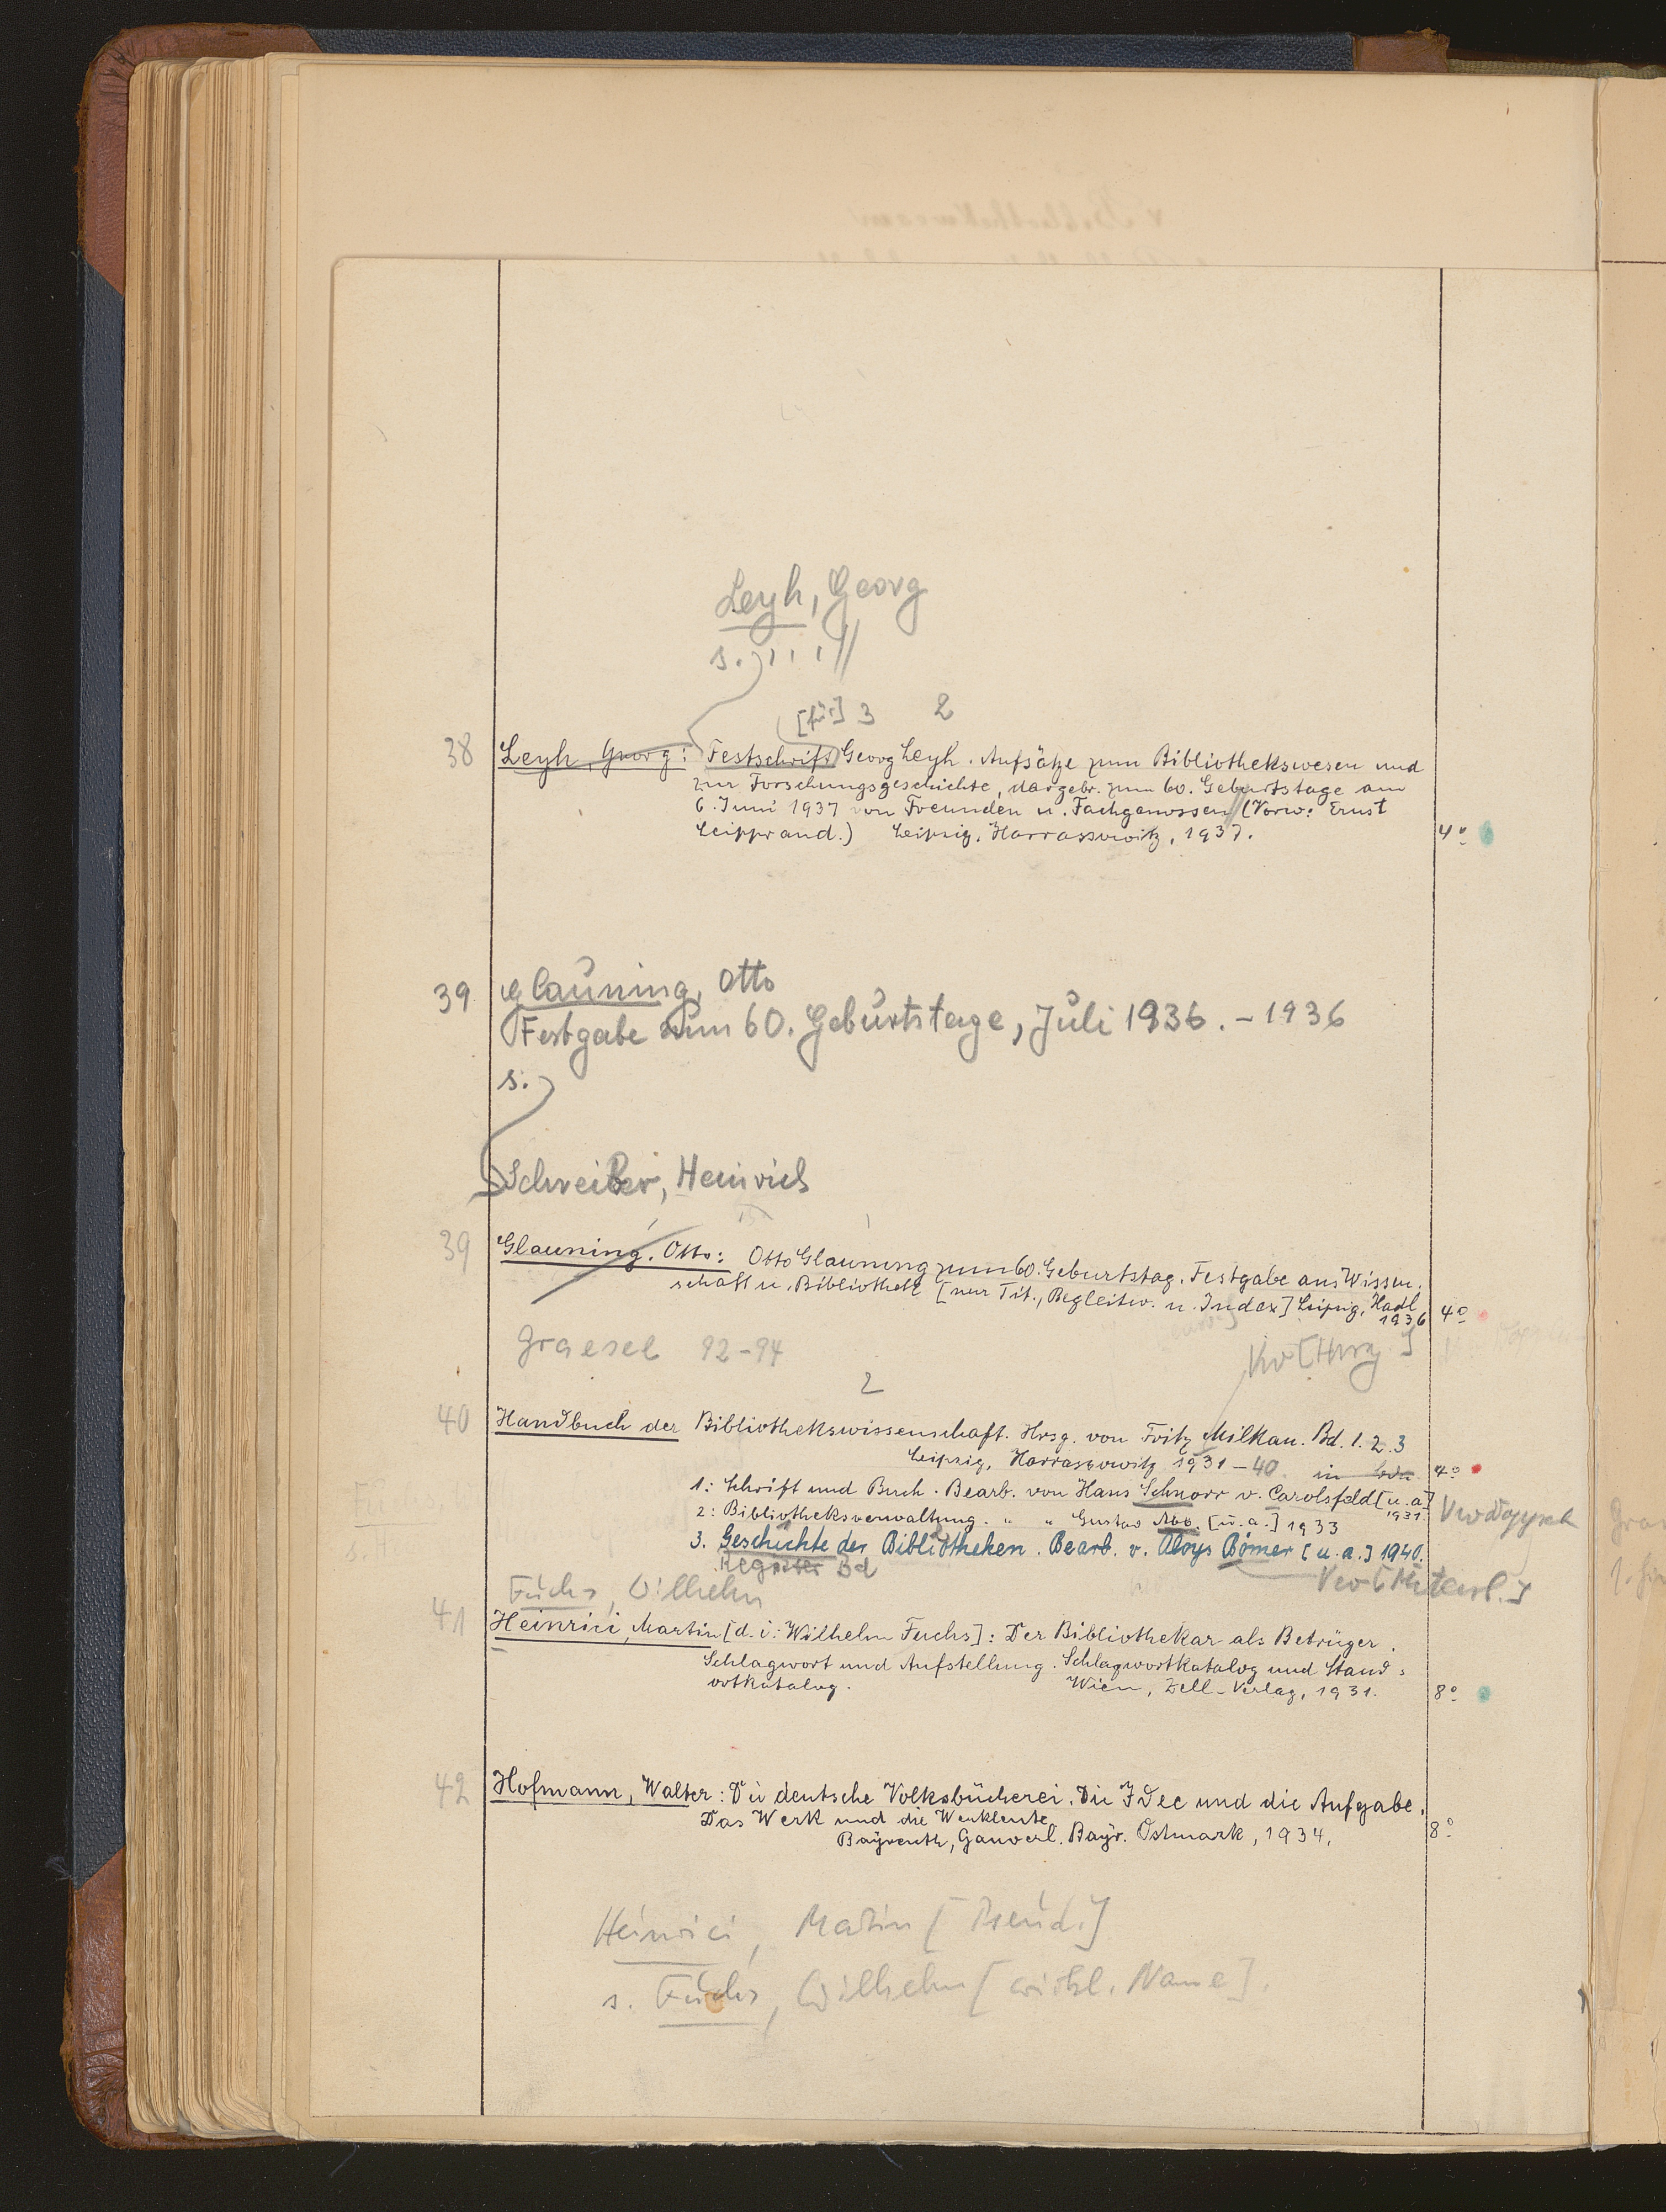 Leyh, Georg
s.
[für] 3 2
38 Leyh, Georg: Festschrift Georg Leyh. Aufsätze zum Bibliothekswesen und
zur Forschungsgeschichte, dargebr. zum 60. Geburtstage am
6. Juni 1937 von Freunden u. Fachgenossen (Vorw: Ernst
Leipprand.) Leipzig, Harrassowitz, 1937. 4º
39 Glauning, Otto
Festgabe zum 60. Geburtstage, Juli 1936. - 1936
s.
Schreiber, Heinrich
39 Glauning, Otto: Otto Glauning zum 60. Geburtstag. Festgabe aus Wissen-
schaft u. Bibliothek [nur Tit., Begleitw. u. Index] Leipzig, Hadl
1936 4º
Graesel 92-94 Vw [Hrsg]
2
40 Handbuch der Bibliothekswissenschaft. Hrsg. von Fritz Milkau. Bd. 1. 2. 3
Leipzig, Harrassowitz 1931-40. in 4º
1: Schrift und Buch. Bearb. von Hans Schnorr v. Carolsfeld [u. a]
1931.
2: Bibliotheksverwaltung. " " Gustav Abb. [u. a.] 1933
3. Geschichte der Bibliotheken. Bearb. v. Aloys Bömer [u. a.] 1940.
Register Bd
Vw [Mitarb.]
Fuchs, Wilhelm
41 Heinrici, Martin [d. i: Wilhelm Fuchs]: Der Bibliothekar als Betrüger.
Schlagwort und Aufstellung. Schlagwortkatalog und Stand-
ortkatalog. Wien, Zell-Verlag, 1931. 8º
42 Hofmann, Walter: Die deutsche Volksbücherei. Die Idee und die Aufgabe.
Das Werk und die Werkleute.
Bayreuth, Gauverl. Bayr. Ostmark, 1934. 8º
Heinrici, Martin [Pseud.]
s. Fuchs, Wilhelm [wirkl. Name].